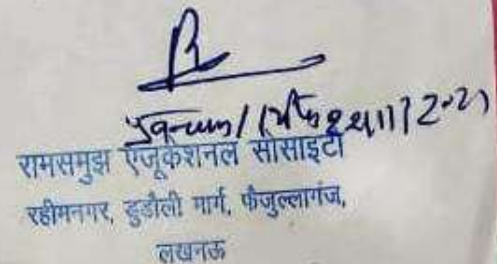 रामसमुझ एजूकेशनल सोसाइटी
रहीमनगर, डुडौली मार्ग, फैजुल्लागंज,
लखनऊ